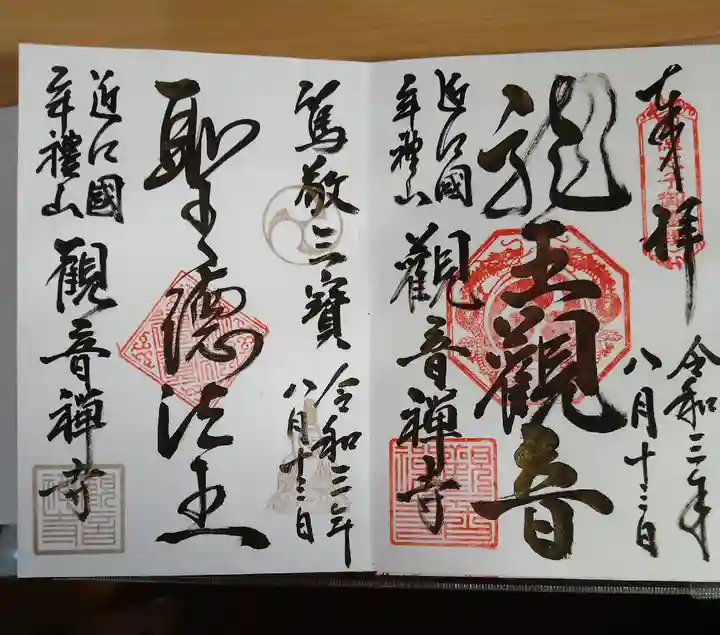 奉拝
令和三年
八月十三日
龍王觀音
近江國
年禮山
觀音禪寺
篤敬三寶
令和三年
八月十三日
聖徳法王
近江國
年禮山
觀音禪寺